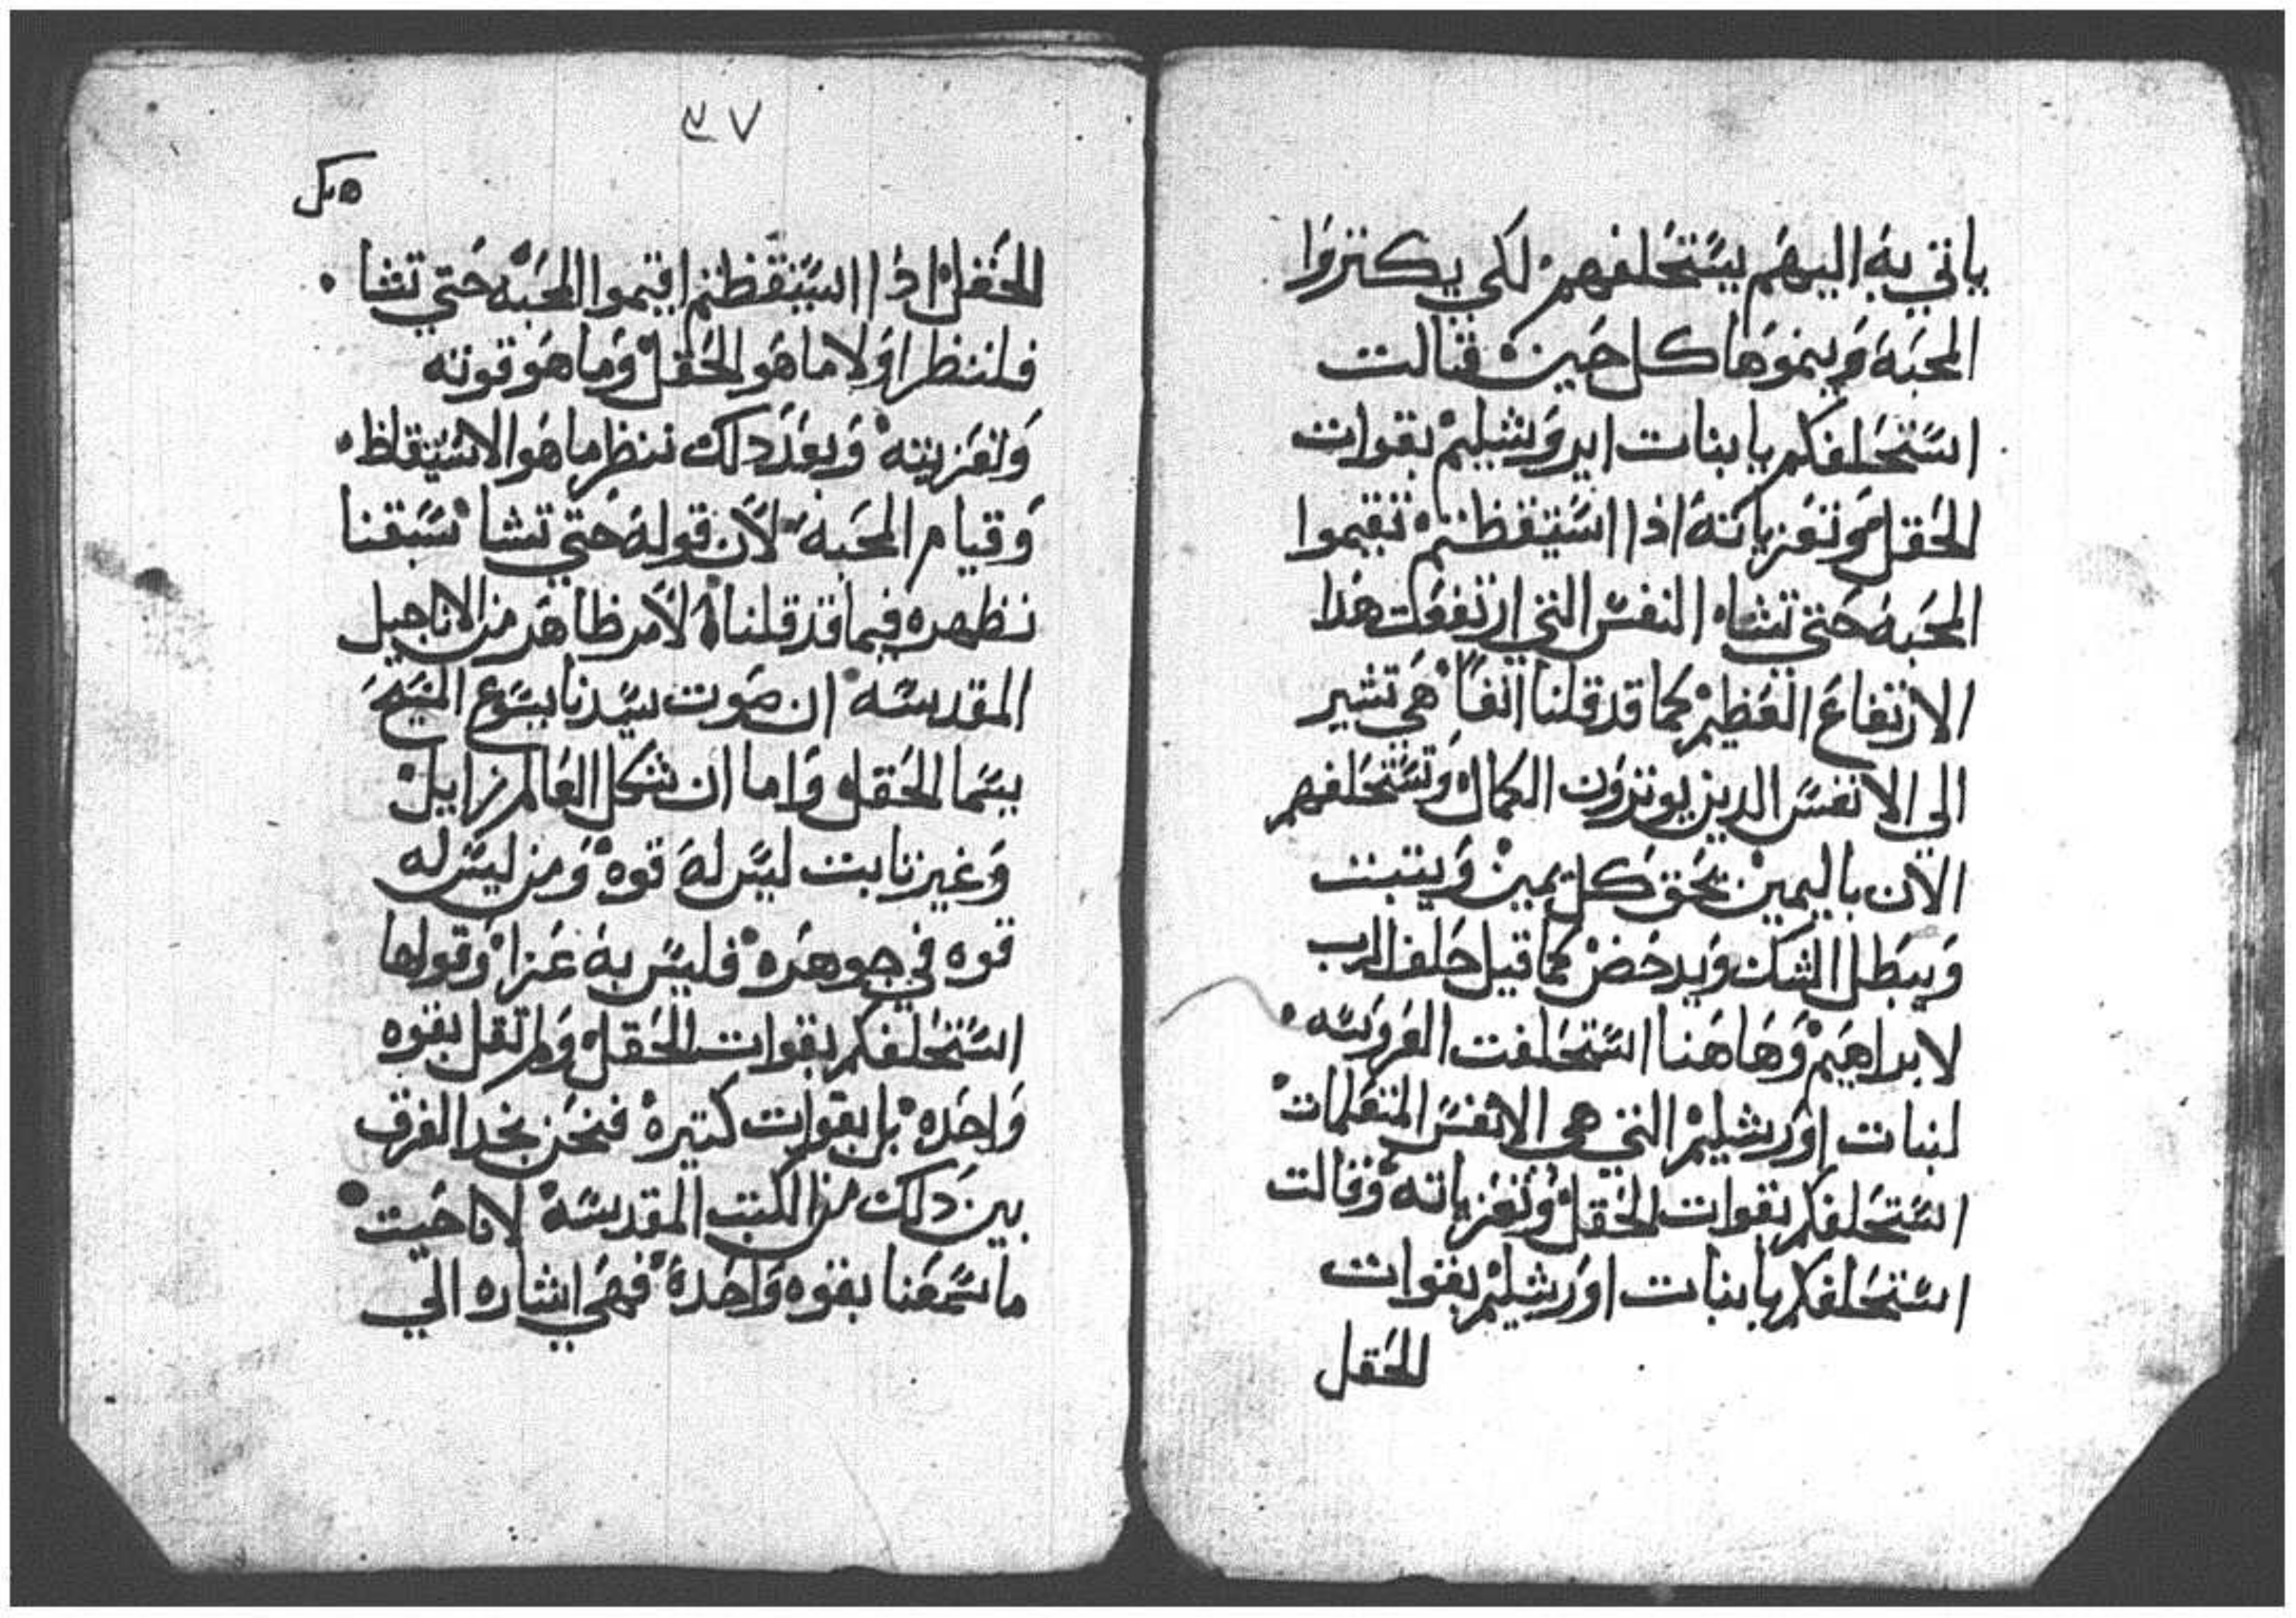 ياتي به اليهم يستحلفهم لكي يكتروا
المحبه وينموها كل حين قالت
استحلفكم يا بنات ايروشليم بقوات
الحقل وتعزياته اذا استيقظتم تقيموا
المحبه حتي تشا النفس التي ارتفعت هدا
الارتفاع العظيم كما قد قلنا انفا هي تشير
الي الانفس الدين يوتروون الكمال وتستحلفهم
الان باليمين بحق كل يمين ويتبت
ويبطل الشك ويدحض كما قيل حلف الرب
لابراهيم وهاهنا استحلفت العروسه
لبنات اورشليم التي هي الانفس المتعلمات
استحلفكم بقوات الحقل وتعزياته وقالت
استحلفكم يا بنات اورشليم بقوات
الحقل
٣٧
الحقل اذا استيقظتم اقيموا المحبه حتي تشا
فلننظر اولا ما هو الحقل وما هو قوته
وتعزيته وبعد دلك ننظر ما هو الاستيقاظ
وقيام المحبه لان قوله حتي تشا سبقنا
نظهره فيما قد قلناه لامر ظاهر من الاناجيل
المقدسه ان صوت سيدنا يسوع المسيح
يسما الحقل واما ان شكل العالم زايل
وغير تابت ليس له قوه ومن ليس له
قوه في جوهره فليس به عزا وقولها
استحلفكم بقوات الحقل ولم تقل بقوه
واحده بل بقوات كتيره فنحن نجد الفرق
بين داك من الكتب المقدسه لانا حيت
ما سمعنا بقوه واحده فهي اشاره الي